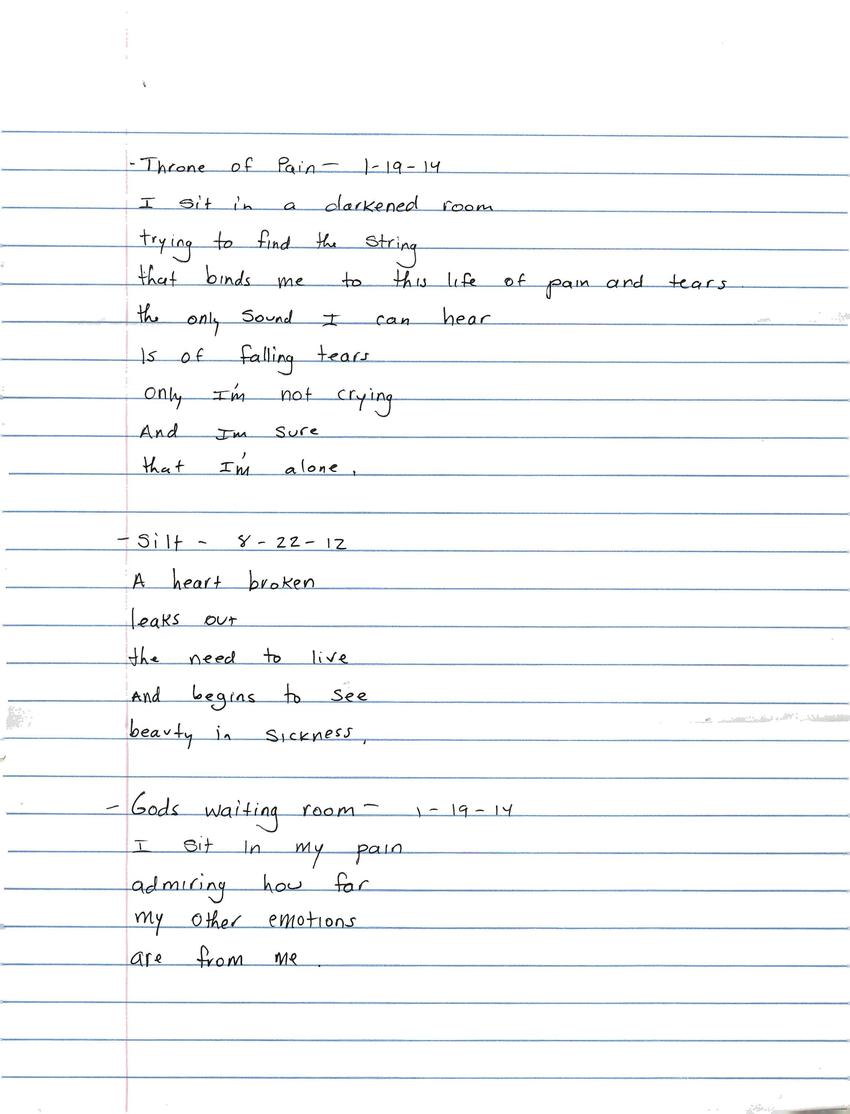 - Throne of Pain - 1-19-14
I sit in a darkened room
trying to find the string
that binds me to this life of pain and tears
the only sound I can hear
Is of falling tears
Only I'm not crying
And Im sure
that I'm alone.
- Silt - 8-22-12
A heart broken
leaks out
the need to live
And begins to see
beauty in sickness.
- Gods waiting room - 1-19-14
I sit In my pain
admiring how far
my other emotions
are from me.